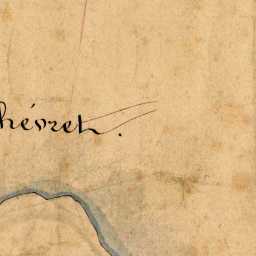 hévret.